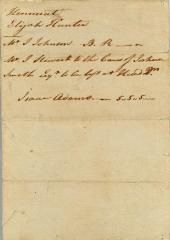 Elijah Hunter
Mr J Johnson B. R
Mr J Stewart to the Care of Joshua
Smith Esqr to be left at Head Qrs
Isaac Adams — 5.5.5 —